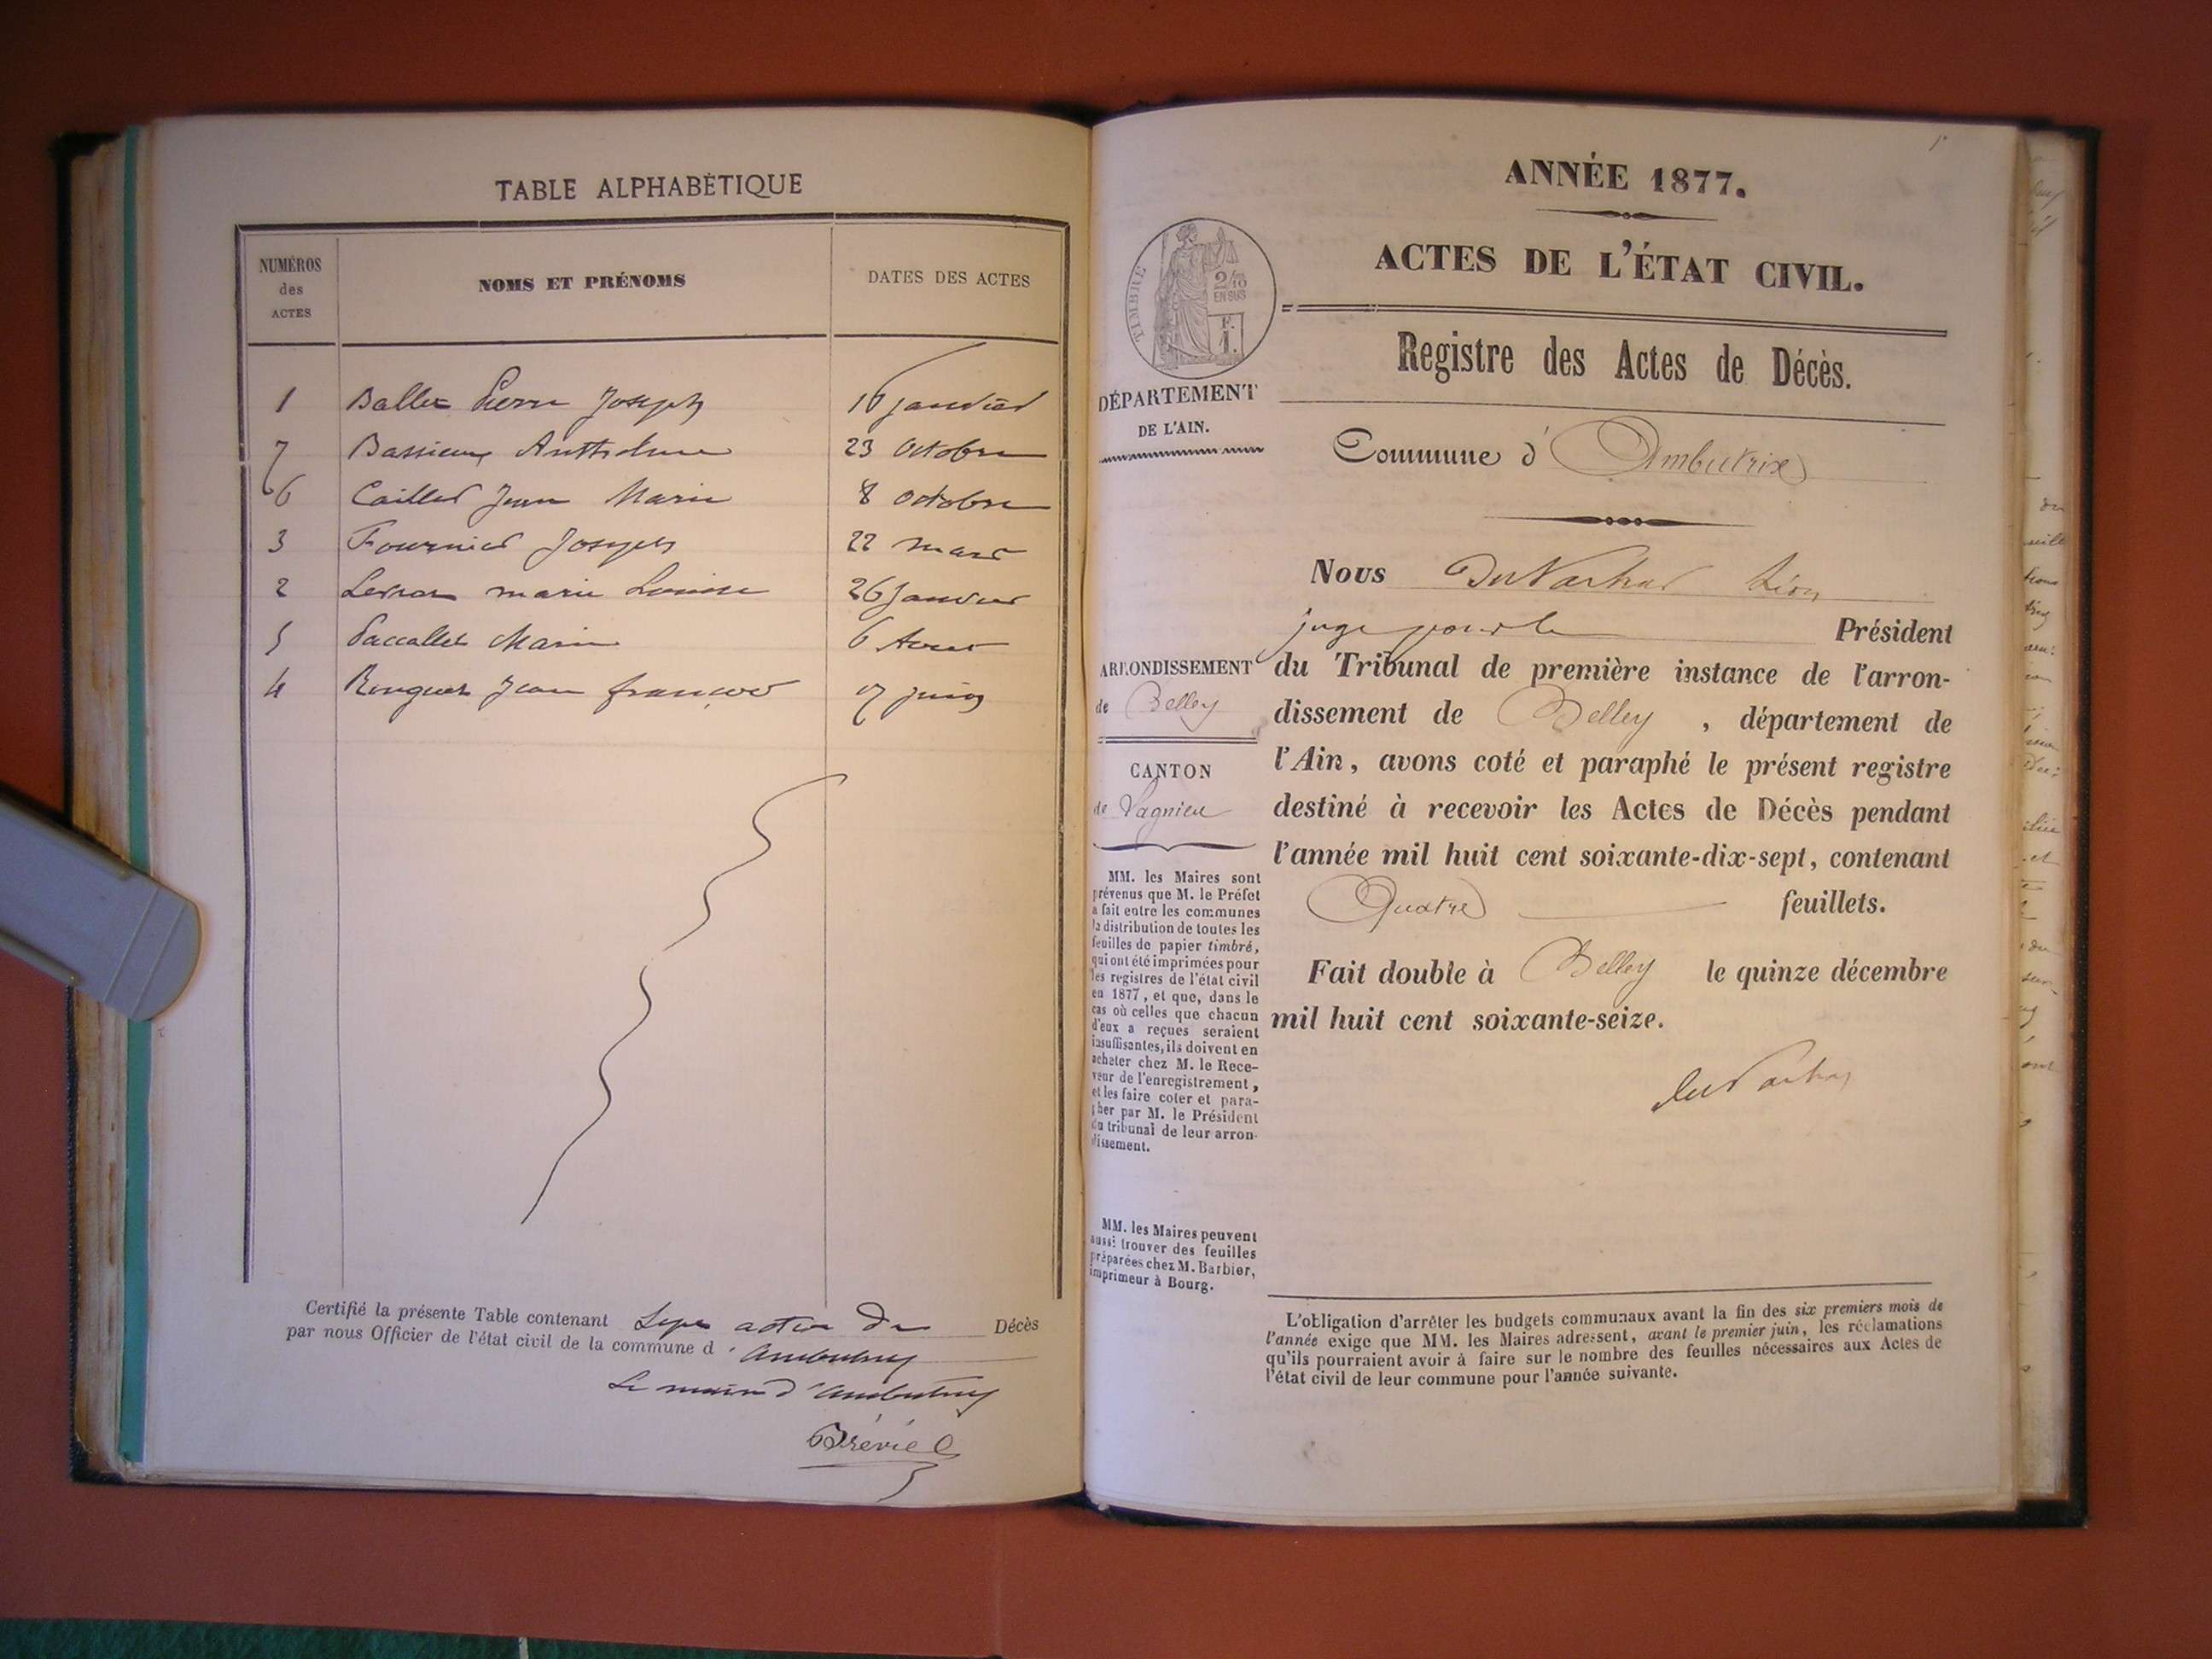 TABLE ALPHABÉTIQUE
NUMÉROS des ACTES
NOMS ET PRÉNOMS
DATES DES ACTES
1 Ballet Pierre Joseph 16 janvier
7 Bassieux Anthelme 23 Octobre
6 Caillet Jean Marie 8 Octobre
3 Fournier Joseph 22 mars
2 marie Louise 26 Janvier
5 Paccallet Marie 6
4 Jean françois 7 juin
Certifié la présente Table contenant Sept actes de Décès
par nous Officier de l'état civil de la commune d'Ambutrix
Le maire d'Ambutrix
1
ANNÉE 1877.
ACTES DE L'ÉTAT CIVIL.
Registre des Actes de Décès.
TIMBRE
2/10
EN SUS
F.
1.
DÉPARTEMENT
DE L'AIN.
Commune d'Ambutrix
Nous Léon
juge pour le Président
ARRONDISSEMENT
de Belley
du Tribunal de première instance de l'arron-
dissement de Belley, département de
l'Ain, avons coté et paraphé le présent registre
destiné à recevoir les Actes de Décès pendant
l'année mil huit cent soixante-dix-sept, contenant
Quatre feuillets.
Fait double à Belley le quinze décembre
mil huit cent soixante-seize.
CANTON
de Lagnieu
MM. les Maires sont
prévenus que M. le Préfet
a fait entre les communes
la distribution de toutes les
feuilles de papier timbré,
qui ont été imprimées pour
les registres de l'état civil
en 1877, et que, dans le
cas où celles que chacun
d'eux a reçues seraient
insuffisantes, ils doivent en
acheter chez M. le Rece-
veur de l'enregistrement,
et les faire coter et para-
pher par M. le Président
du tribunal de leur arron-
dissement.
MM. les Maires peuvent
aussi trouver des feuilles
préparées chez M. Barbier,
imprimeur à Bourg.
L'obligation d'arrêter les budgets communaux avant la fin des six premiers mois de
l'année exige que MM. les Maires adressent, avant le premier juin, les réclamations
qu'ils pourraient avoir à faire sur le nombre des feuilles nécessaires aux Actes de
l'état civil de leur commune pour l'année suivante.